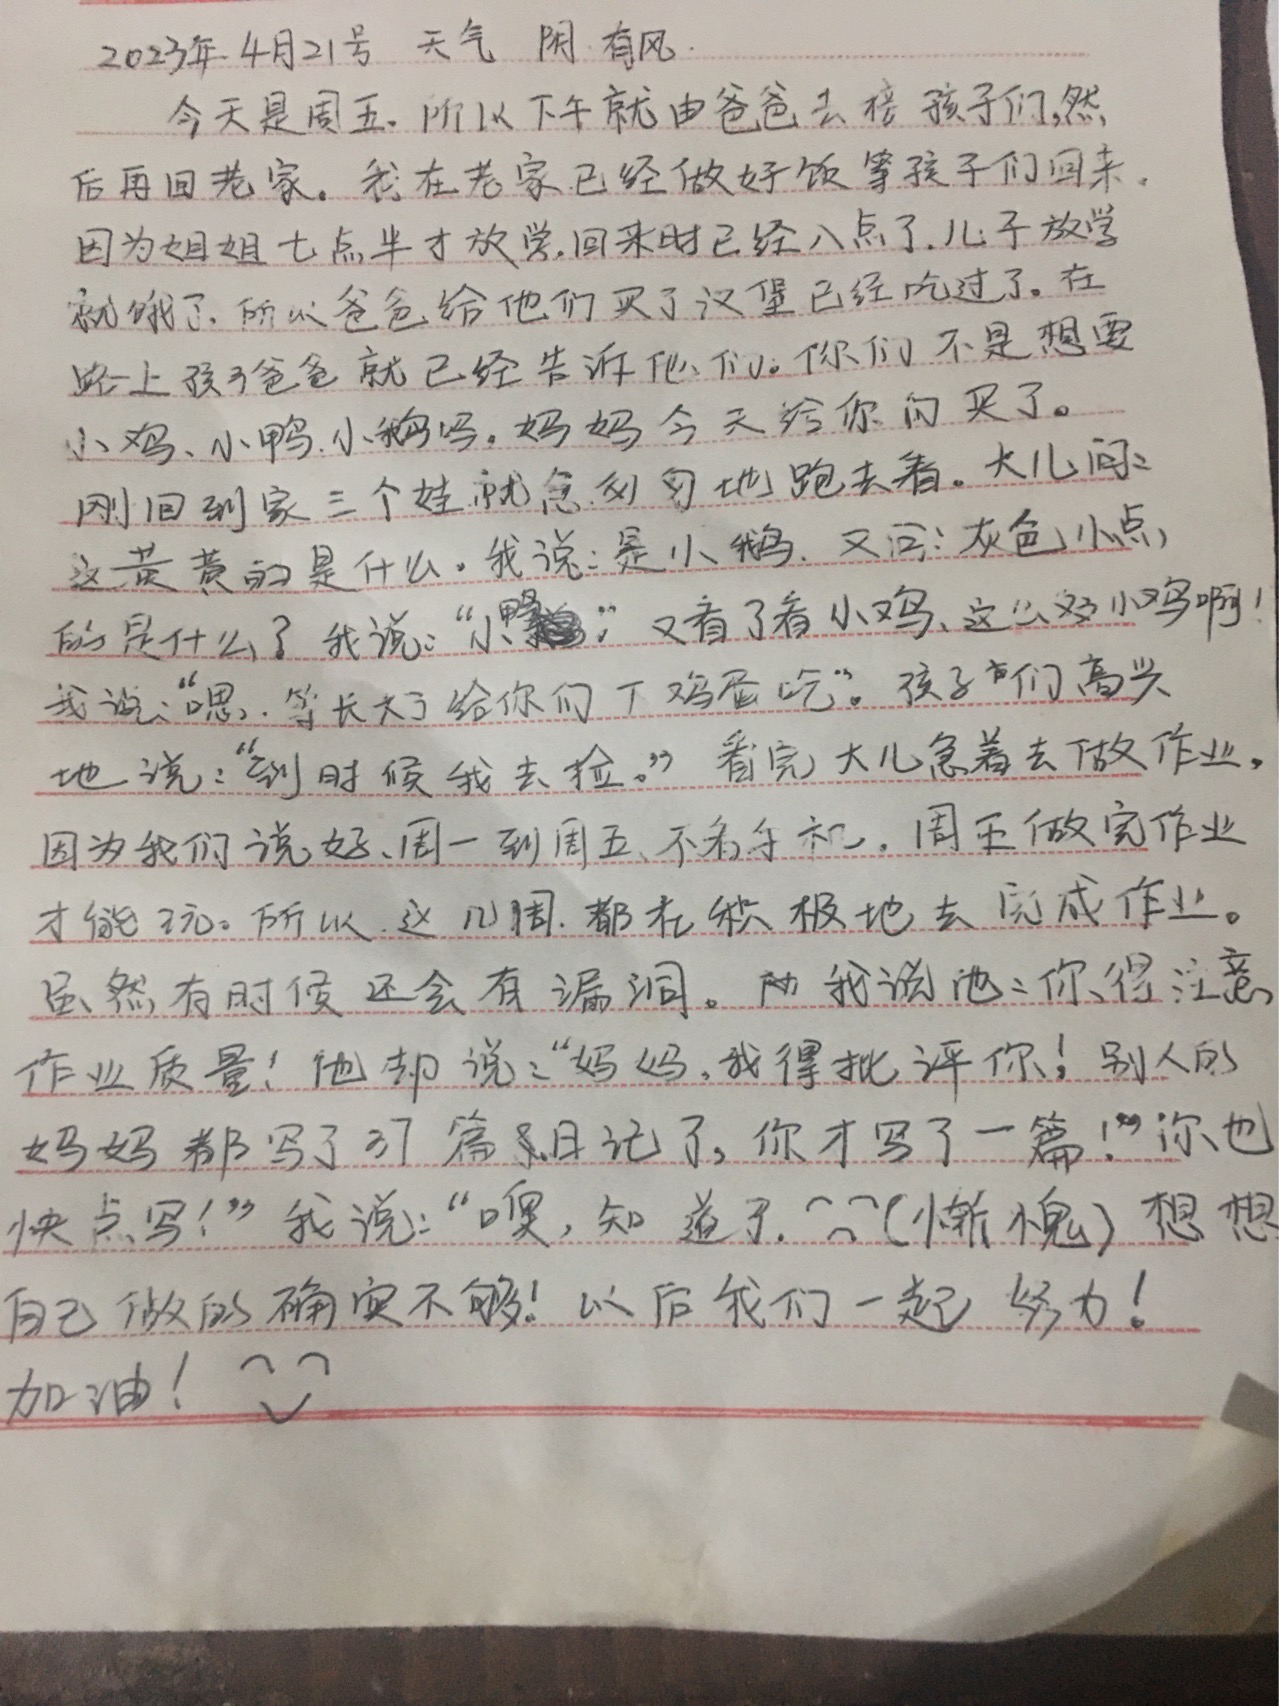 2023年4月21号 天气 阴 有风.
今天是周五.所以下午就由爸爸去接孩子们,然
后再回老家。我在老家已经做好饭等孩子们回来.
因为姐姐七点半才放学.回来时已经八点了.儿子放学
就饿了.所以爸爸给他们买了汉堡已经吃过了。在
路上孩子爸爸就已经告诉他们。你们不是想要
小鸡、小鸭、小鹅吗。妈妈今天给你们买了。
刚回到家三个娃就急匆匆地跑去看。大儿问:
这黄黄的是什么。我说:是小鹅.又问:灰色小点,
的是什么?我说:“小鸭”又看了看小鸡、这么多小鸡啊!
我说:“嗯.等长大了给你们下鸡蛋吃”。孩子们高兴
地说:“到时候我去捡。”看完大儿急着去做作业。
因为我们说好、周一到周五、不看手机.周五做完作业
才能玩。所以.这几周.都在积极地去完成作业。
虽然有时候还会有漏洞。我说他:你得注意
作业质量!他却说:“妈妈,我得批评你!别人的
妈妈都写了37篇日记了,你才写了一篇!”你也
快点写!”我说:“噢,知道了.(惭愧)想想
自己做的确实不够!以后我们一起努力!
加油!